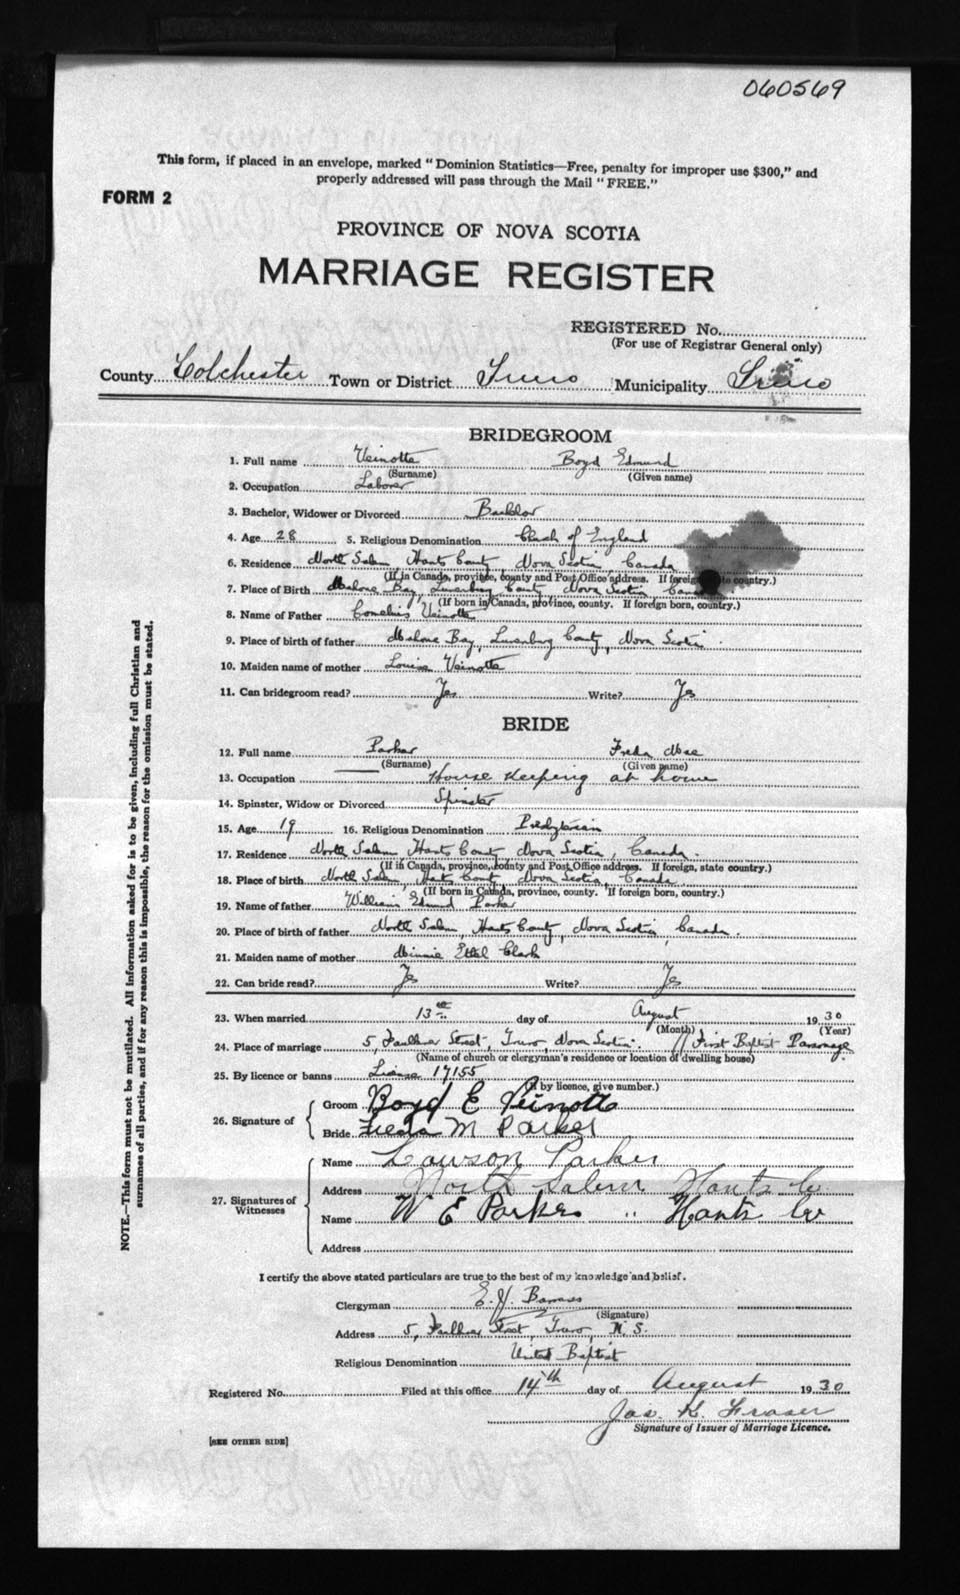 060569
This form, if placed in an envelope, marked "Dominion Statistics—Free, penalty for improper use $300," and
properly addressed will pass through the Mail "FREE."
FORM 2
PROVINCE OF NOVA SCOTIA
MARRIAGE REGISTER
REGISTERED No.
(For use of Registrar General only)
County Colchester Town or District Truro Municipality Truro
BRIDEGROOM
1. Full name Veinotte Boyd Edmund
(Surname) (Given name)
2. Occupation Laborer
3. Bachelor, Widower or Divorced Bachlor
4. Age 28 5. Religious Denomination Church of England
6. Residence North Salem Hants County Nova Scotia Canada
(If in Canada, province, county and Post Office address. If foreign state country.)
7. Place of Birth Mahone Bay, Lunenburg County Nova Scotia Canada
(If born in Canada, province, county. If foreign born, country.)
8. Name of Father Cornelius Veinotte
9. Place of birth of father Mahone Bay, Lunenburg County, Nova Scotia.
10. Maiden name of mother Louise Veinotte
11. Can bridegroom read? Yes Write? Yes
BRIDE
12. Full name Parker Freda Mae
(Surname) (Given name)
13. Occupation House Keeping at home
14. Spinster, Widow or Divorced Spinster
15. Age 19 16. Religious Denomination Presbyterian
17. Residence North Salem Hants County Nova Scotia, Canada.
(If in Canada, province, county and Post Office address. If foreign, state country.)
18. Place of birth North Salem, Hants County, Nova Scotia, Canada.
(If born in Canada, province, county. If foreign born, country.)
19. Name of father William Edmund Parker
20. Place of birth of father North Salem, Hants County, Nova Scotia, Canada.
21. Maiden name of mother Minnie Ettel Clark
22. Can bride read? Yes Write? Yes
23. When married 13th day of August 1930
(Month) (Year)
24. Place of marriage 5, Faulkner Street, Truro, Nova Scotia. // First Baptist Parsonage
(Name of church or clergyman's residence or location of dwelling house)
25. By licence or banns License 17155
(If by licence, give number.)
26. Signature of Groom Boyd E Veinotte
Bride Freda M Parker
27. Signatures of Witnesses
Name Lawson Parker
Address North Salem Hants Co
Name W E Parker " Hants Co
Address
I certify the above stated particulars are true to the best of my knowledge and belief.
Clergyman E. J. Barrass
(Signature)
Address 5, Faulkner Street, Truro, N. S.
Religious Denomination United Baptist
Registered No. Filed at this office 14th day of August 1930
Jas. K. Fraser
Signature of Issuer of Marriage Licence.
[SEE OTHER SIDE]
NOTE.—This form must not be mutilated. All information asked for is to be given, including full Christian and
surnames of all parties, and if for any reason this is impossible, the reason for the omission must be stated.